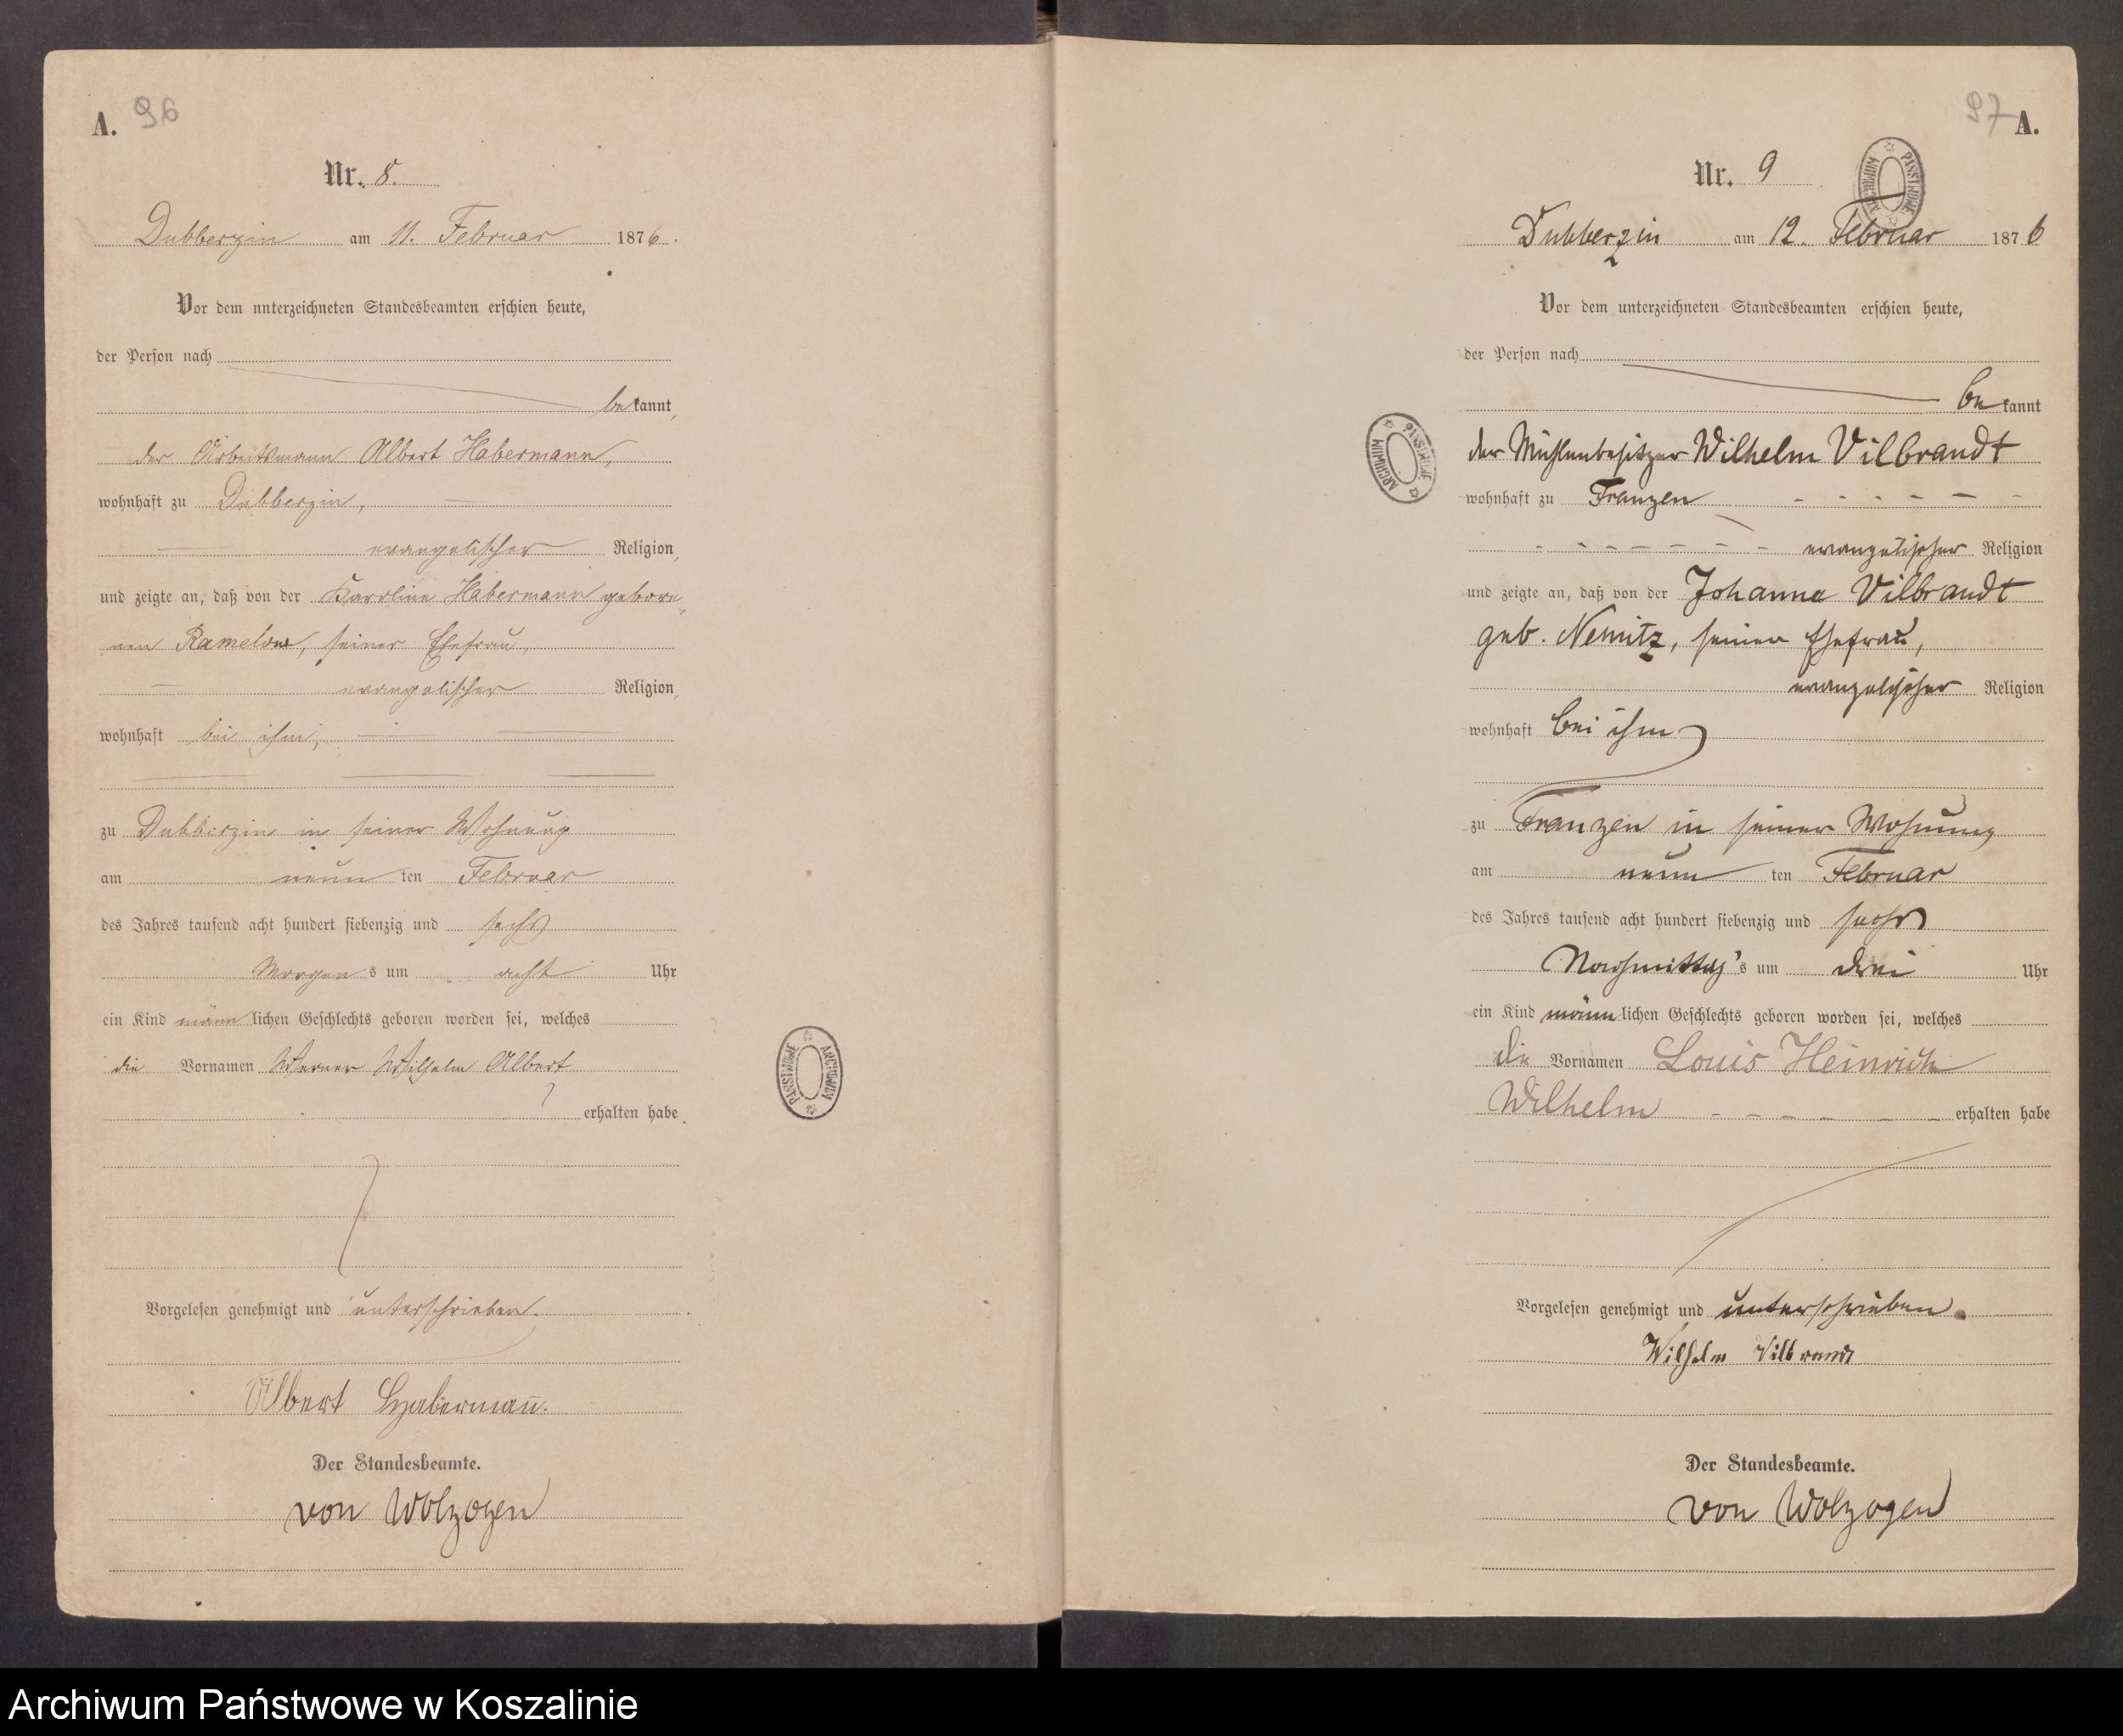 A. 96
Nr. 8.
Dubberzin am 11. Februar 1876.
Vor dem unterzeichneten Standesbeamten erschien heute,
der Person nach
bekannt,
der Arbeitsmann Albert Habermann,
wohnhaft zu Dubberzin,
evangelischer Religion,
und zeigte an, daß von der Karoline Habermann gebore-
nen Ramelow, seiner Ehefrau,
evangelischer Religion,
wohnhaft bei ihm,
zu Dubberzin in seiner Wohnung
am neun ten Februar
des Jahres tausend acht hundert siebenzig und sechs
Morgens um acht Uhr
ein Kind männlichen Geschlechts geboren worden sei, welches
die Vornamen Werner Wilhelm Albert
erhalten habe.
Vorgelesen genehmigt und unterschrieben.
Albert Habermann.
Der Standesbeamte.
von Wolzogen
97 A.
Nr. 9
ARCHIWUM PAŃSTWOWE
Dubberzin am 12. Februar 1876
Vor dem unterzeichneten Standesbeamten erschien heute,
der Person nach
bekannt
der Mühlenbesitzer Wilhelm Vilbrandt
wohnhaft zu Franzen
evangelischer Religion
und zeigte an, daß von der Johanna Vilbrandt
geb. Nemitz, seiner Ehefrau,
evangelischer Religion
wohnhaft bei ihm
zu Franzen in seiner Wohnung
am neun ten Februar
des Jahres tausend acht hundert siebenzig und sechs
Nachmittag's um drei Uhr
ein Kind männlichen Geschlechts geboren worden sei, welches
die Vornamen Louis Heinrich
Wilhelm erhalten habe
Vorgelesen genehmigt und unterschrieben.
Wilhelm Vilbrandt
Der Standesbeamte.
von Wolzogen
ARCHIWUM PAŃSTWOWE
ARCHIWUM PAŃSTWOWE
Archiwum Państwowe w Koszalinie